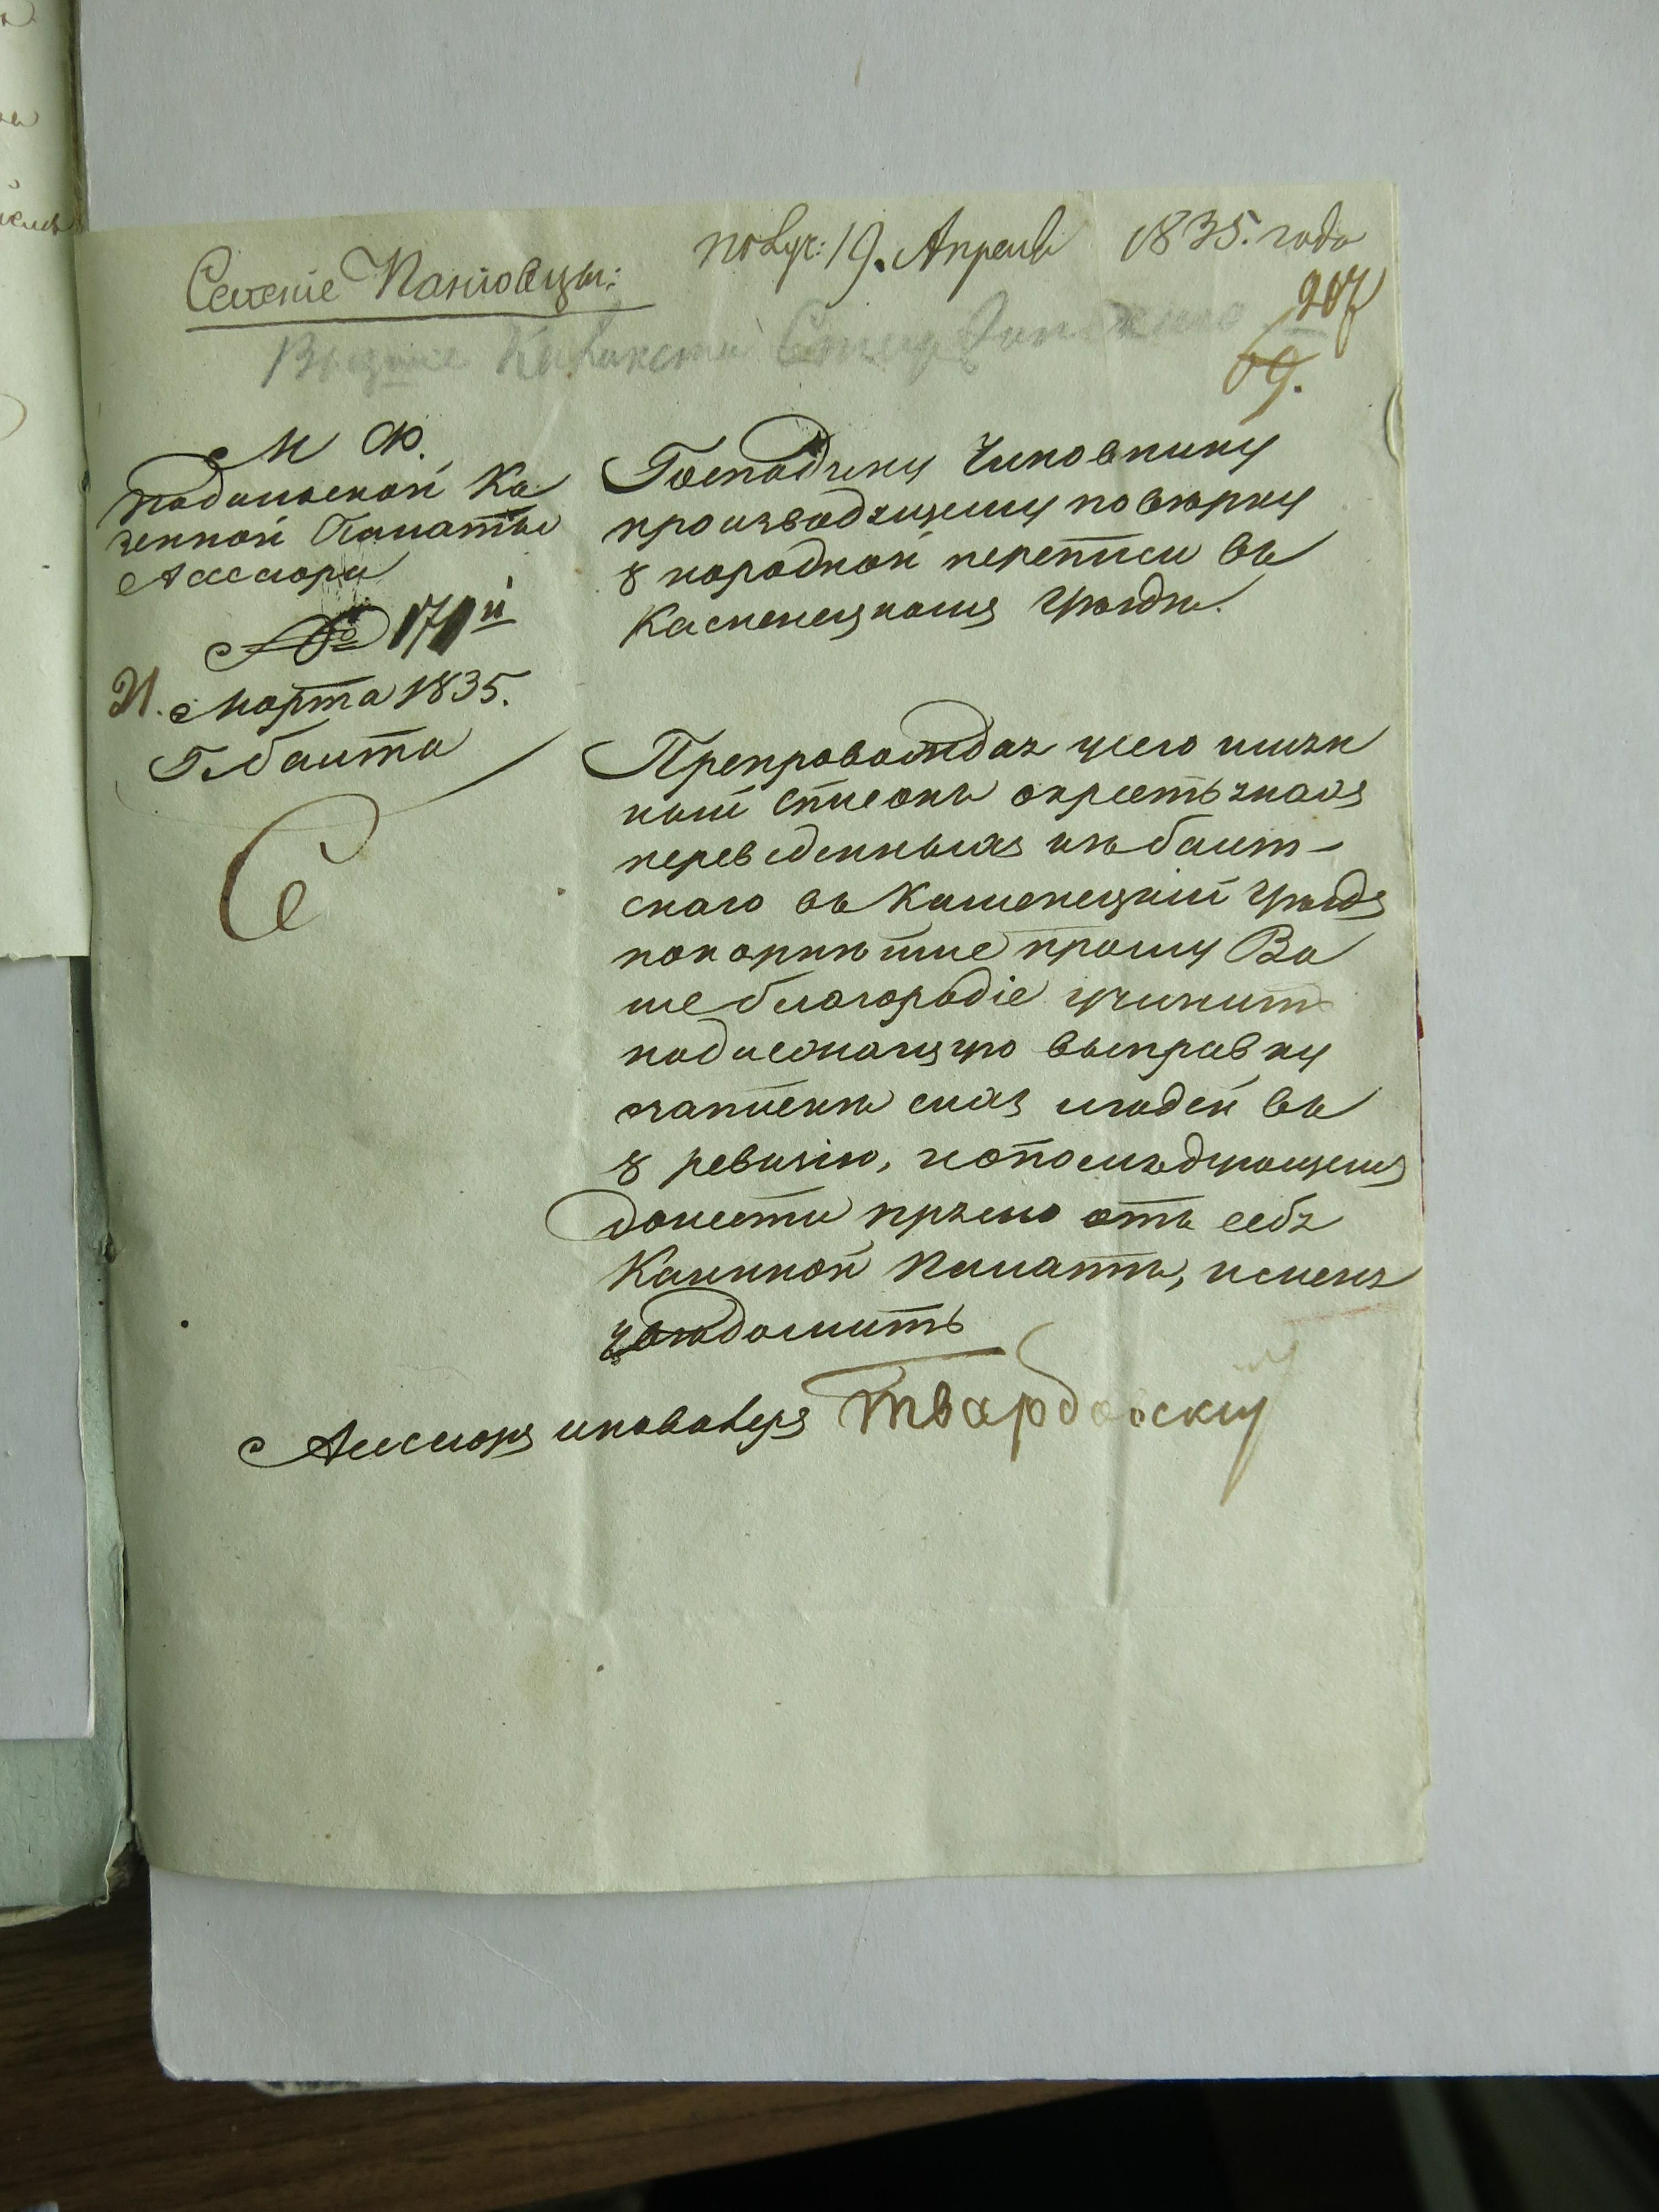 Селеніе Паніовцы:
получ: 19. Апреля 1835. года
207
69.
М Ф.
Подольской Ка
зенной Палаты
Ассесора
№ 171й
21. Марта 1835.
Г. балта
Господину Чиновнику
производящему поверку
8 народной переписи въ
Каменецкомъ уѣздѣ.
Препровождая у сего имян
ный списокъ окрестьянахъ
переведенныхъ изъ балт-
скаго въ Каменецкій уѣздъ
покорнѣйше прошу Ва
ше благородіе учинить
надлежащую выправку
запискѣ сихъ людей въ
8 ревизію, ипопоследующему
донести прямо отъ себя
Казенной Палатѣ, именя
уведомить
Ассесоръ Твардовскій